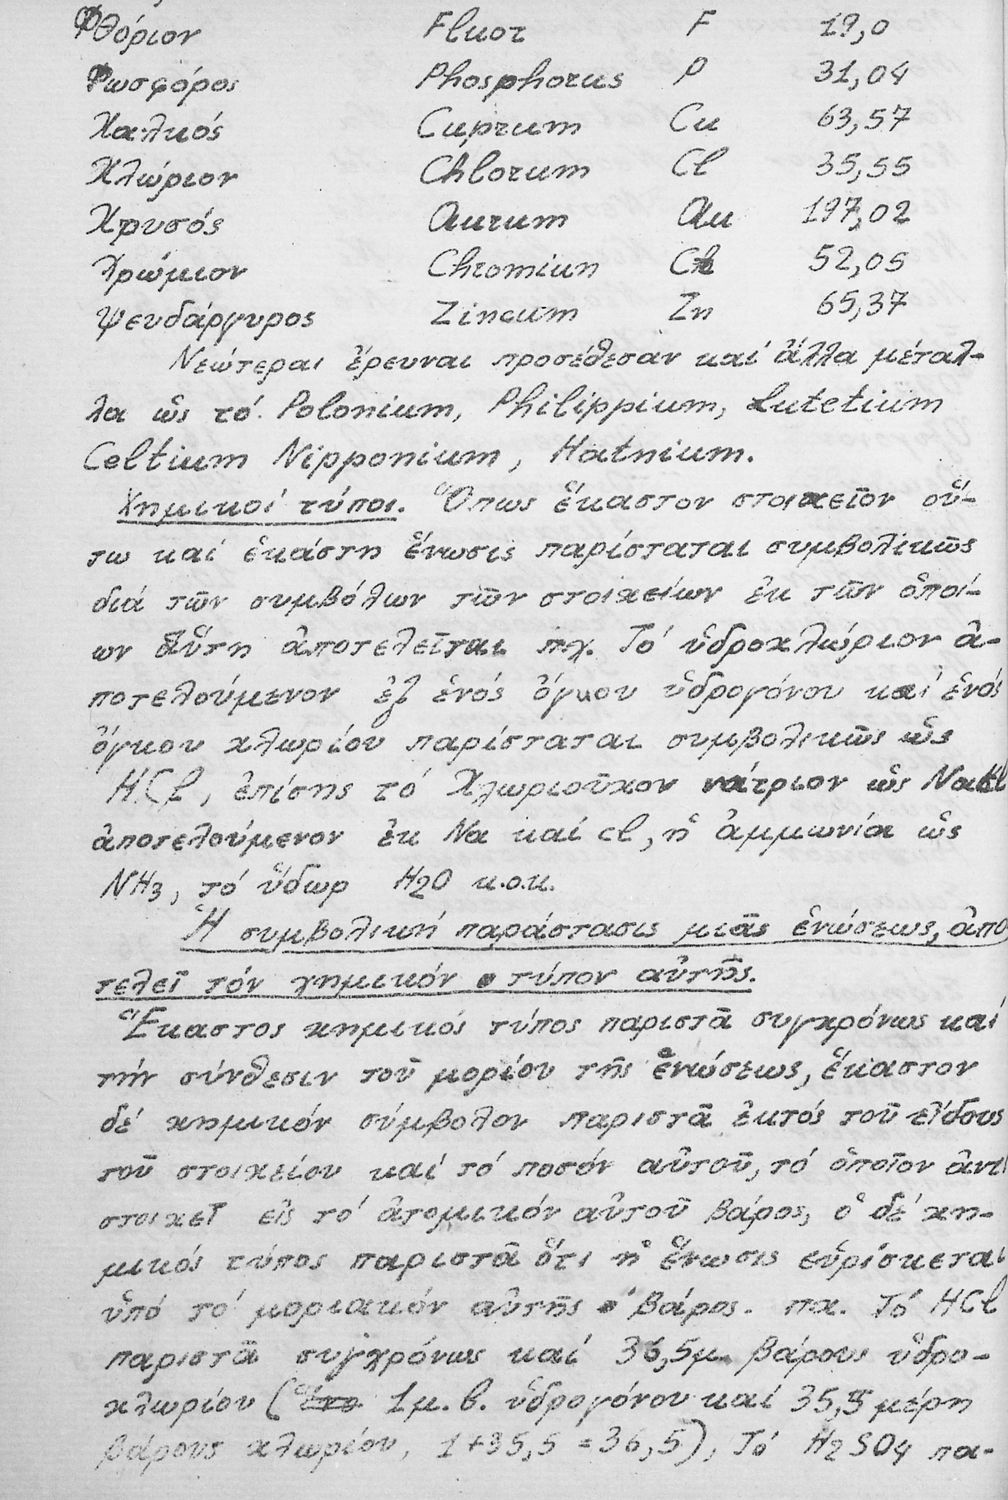 Φθόριον Fluor F 19,0
Φωσφόρος Phosphorus P 31,04
Χαλκός Cuprum Cu 63,57
Χλώριον Chlorum Cl 35,55
Χρυσός Aurum Au 197,02
Χρώμιον Chromium 52,05
Ψευδάργυρος Zincum Zn 65,37
Νεώτεραι ἔρευναι προσέθεσαν καί ἄλλα μέταλ-
λα ὡς τό Polonium, Philippium, Lutetium
Celtium Nipponium, Hatnium.
Χημικοί τύποι. Ὅπως ἕκαστον στοιχεῖον οὕ-
τω καί ἑκάστη ἕνωσις παρίσταται συμβολικῶς
διά τῶν συμβόλων τῶν στοιχείων ἐκ τῶν ὁποί-
ων αὕτη ἀποτελεῖται πχ. Τό ὑδροχλώριον ἀ-
ποτελούμενον ἐξ ἑνός ὄγκου ὑδρογόνου καί ἑνός
ὄγκου χλωρίου παρίσταται συμβολικῶς ὡς
HCl, ἐπίσης τό Χλωριοῦχον νάτριον ὡς NaCl
ἀποτελούμενον ἐκ Na καί cl, ἡ ἀμμωνία ὡς
NH3, τό ὕδωρ H2O κ.ο.κ.
Ἡ συμβολική παράστασις μιᾶς ἑνώσεως, ἀπο
τελεῖ τόν χημικόν τύπον αὐτῆς.
Ἕκαστος χημικός τύπος παριστᾶ συγχρόνως καί
τήν σύνθεσιν τοῦ μορίου τῆς ἑνώσεως, ἕκαστον
δέ χημικόν σύμβολον παριστᾶ ἐκτός τοῦ εἴδους
τοῦ στοιχείου καί τό ποσόν αὐτοῦ, τό ὁποῖον ἀντι
στοιχεῖ εἰς τό ἀτομικόν αὐτοῦ βάρος, ὁ δέ χη-
μικός τύπος παριστᾶ ὅτι ἡ ἕνωσις εὑρίσκεται
ὑπό τό μοριακόν αὐτῆς βάρος. πχ. Τό HCl
παριστᾶ συγχρόνως καί 36,5μ. βάρους ὑδρο-
χλωρίου ( 1μ.β. ὑδρογόνου καί 35,5 μέρη
βάρους χλωρίου, 1+35,5=36,5), Τό H2SO4 πα-